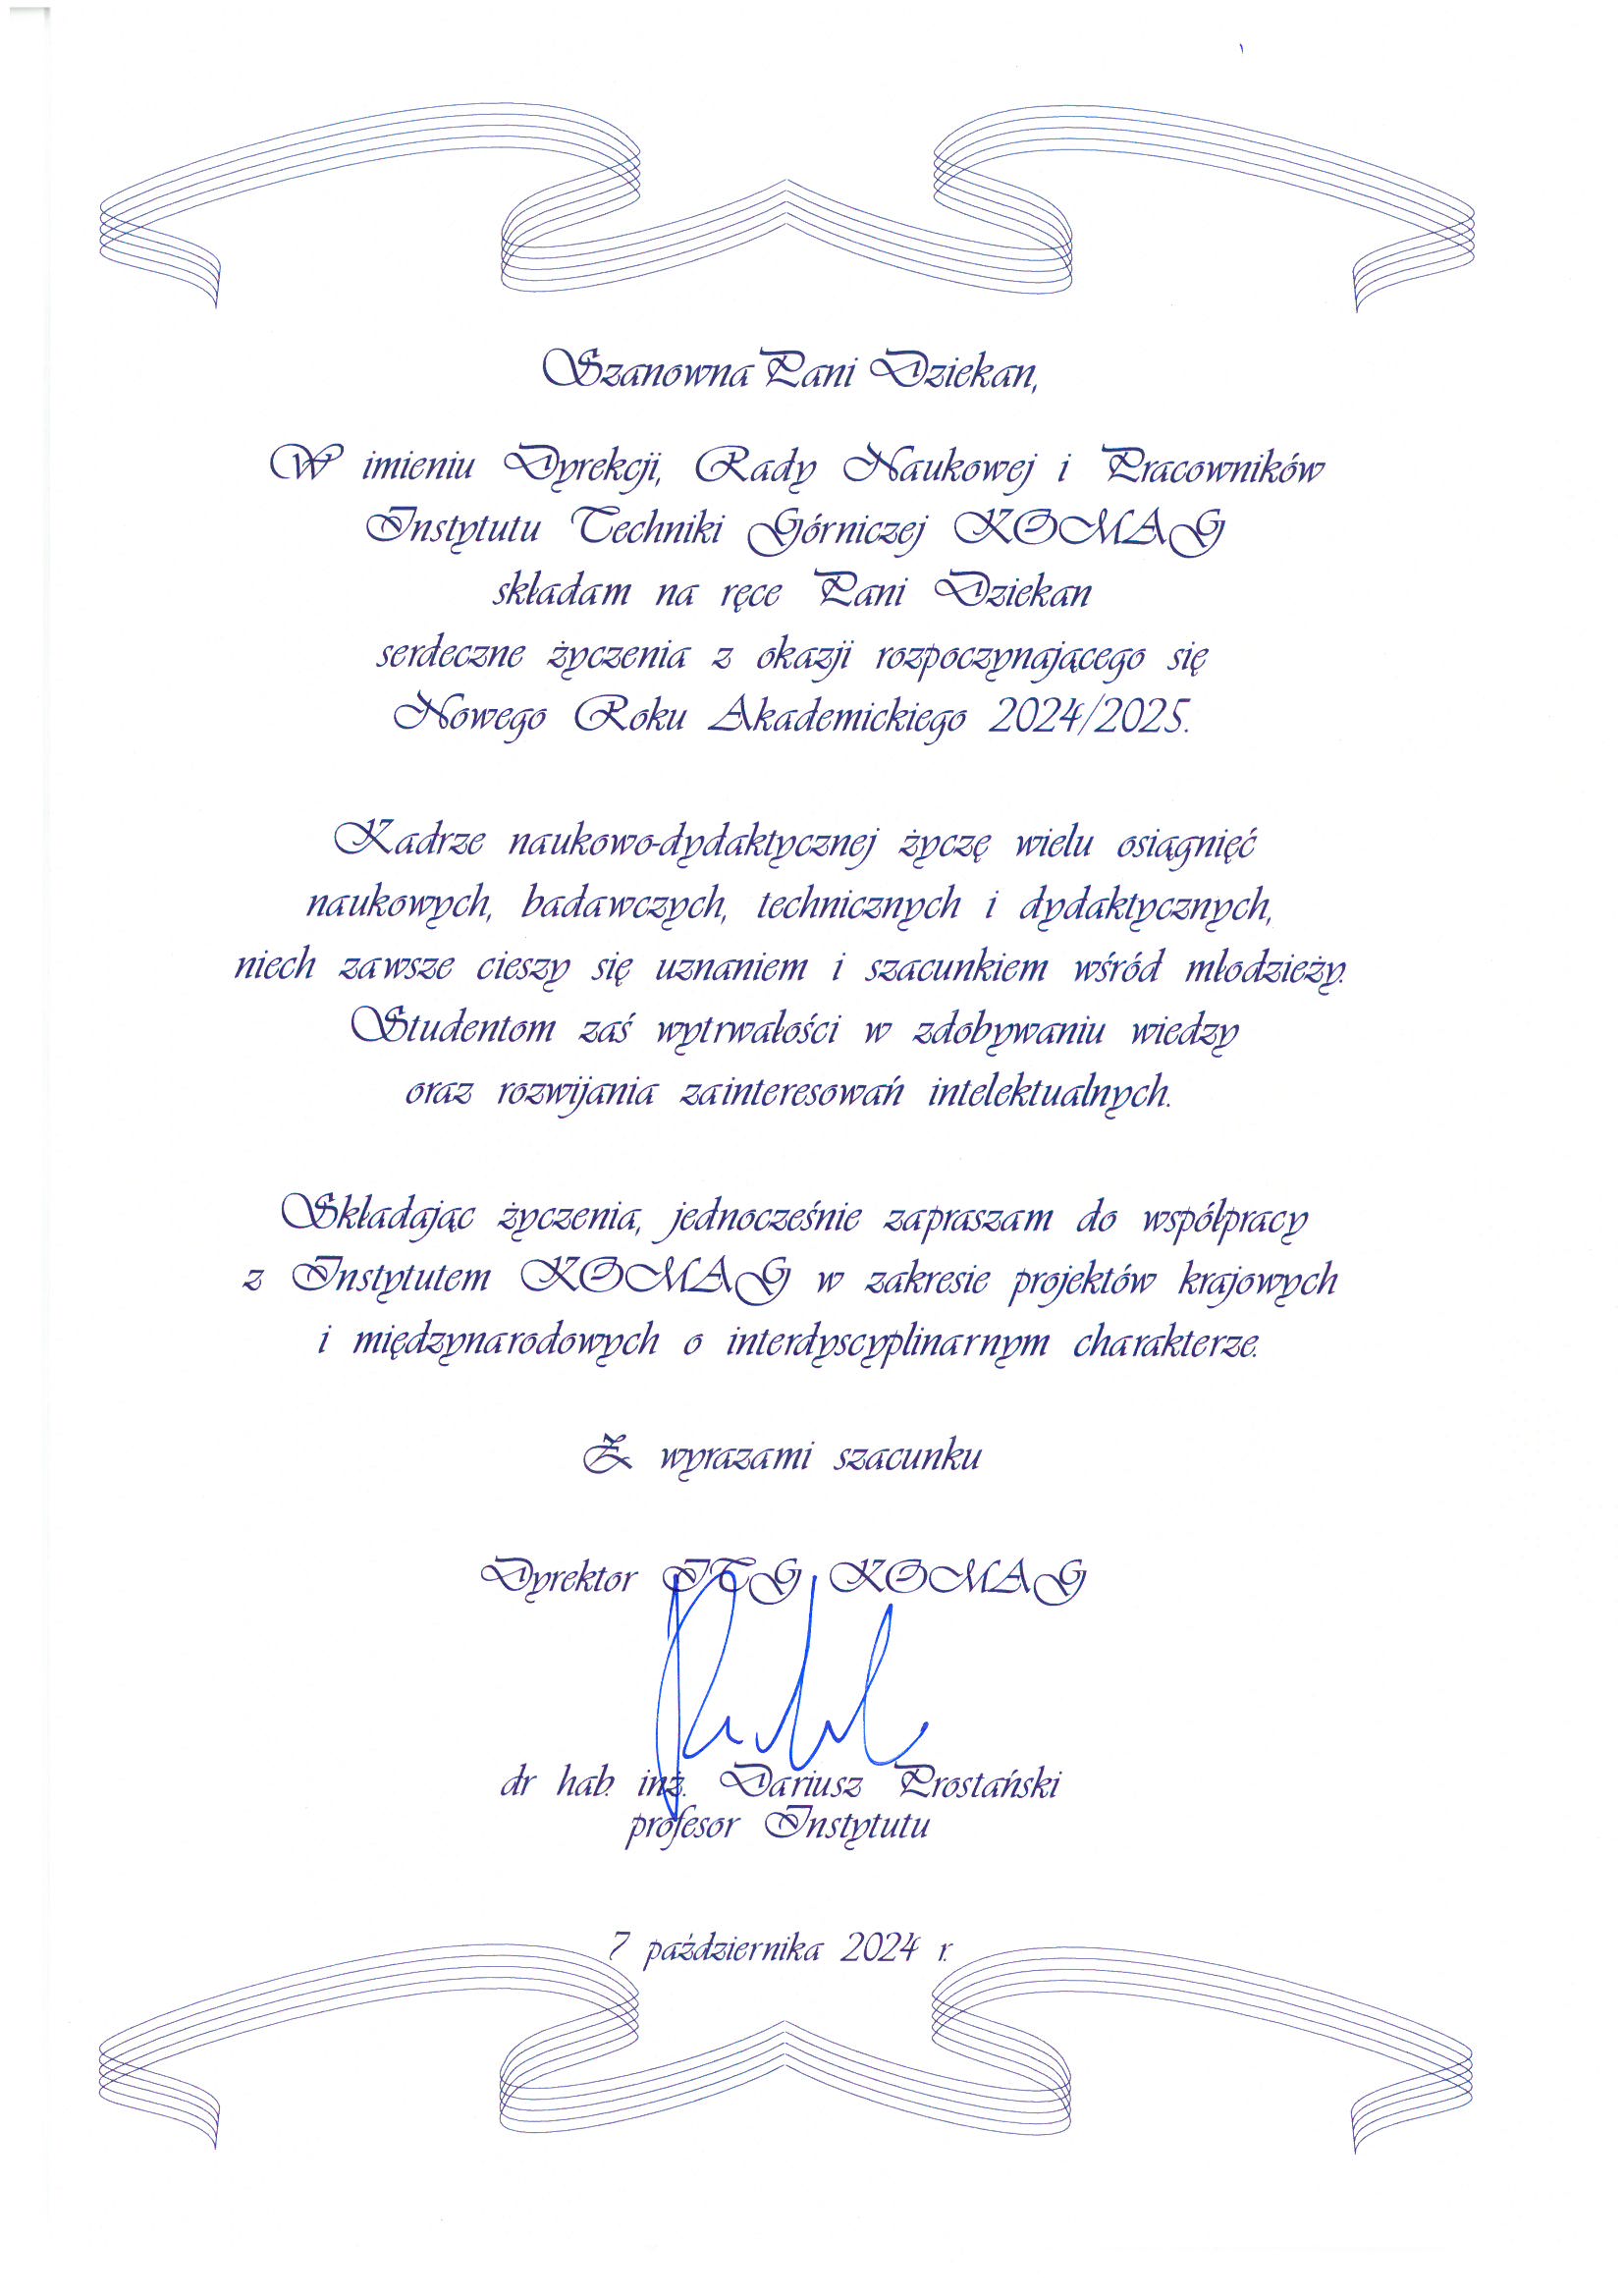 Szanowna Pani Dziekan,
W imieniu Dyrekcji, Rady Naukowej i Pracowników
Instytutu Techniki Górniczej KOMAG
składam na ręce Pani Dziekan
serdeczne życzenia z okazji rozpoczynającego się
Nowego Roku Akademickiego 2024/2025.
Kadrze naukowo-dydaktycznej życzę wielu osiągnięć
naukowych, badawczych, technicznych i dydaktycznych,
niech zawsze cieszy się uznaniem i szacunkiem wśród młodzieży.
Studentom zaś wytrwałości w zdobywaniu wiedzy
oraz rozwijania zainteresowań intelektualnych.
Składając życzenia, jednocześnie zapraszam do współpracy
z Instytutem KOMAG w zakresie projektów krajowych
i międzynarodowych o interdyscyplinarnym charakterze.
Z wyrazami szacunku
Dyrektor ITG KOMAG
dr hab. inż. Dariusz Prostański
profesor Instytutu
7 października 2024 r.